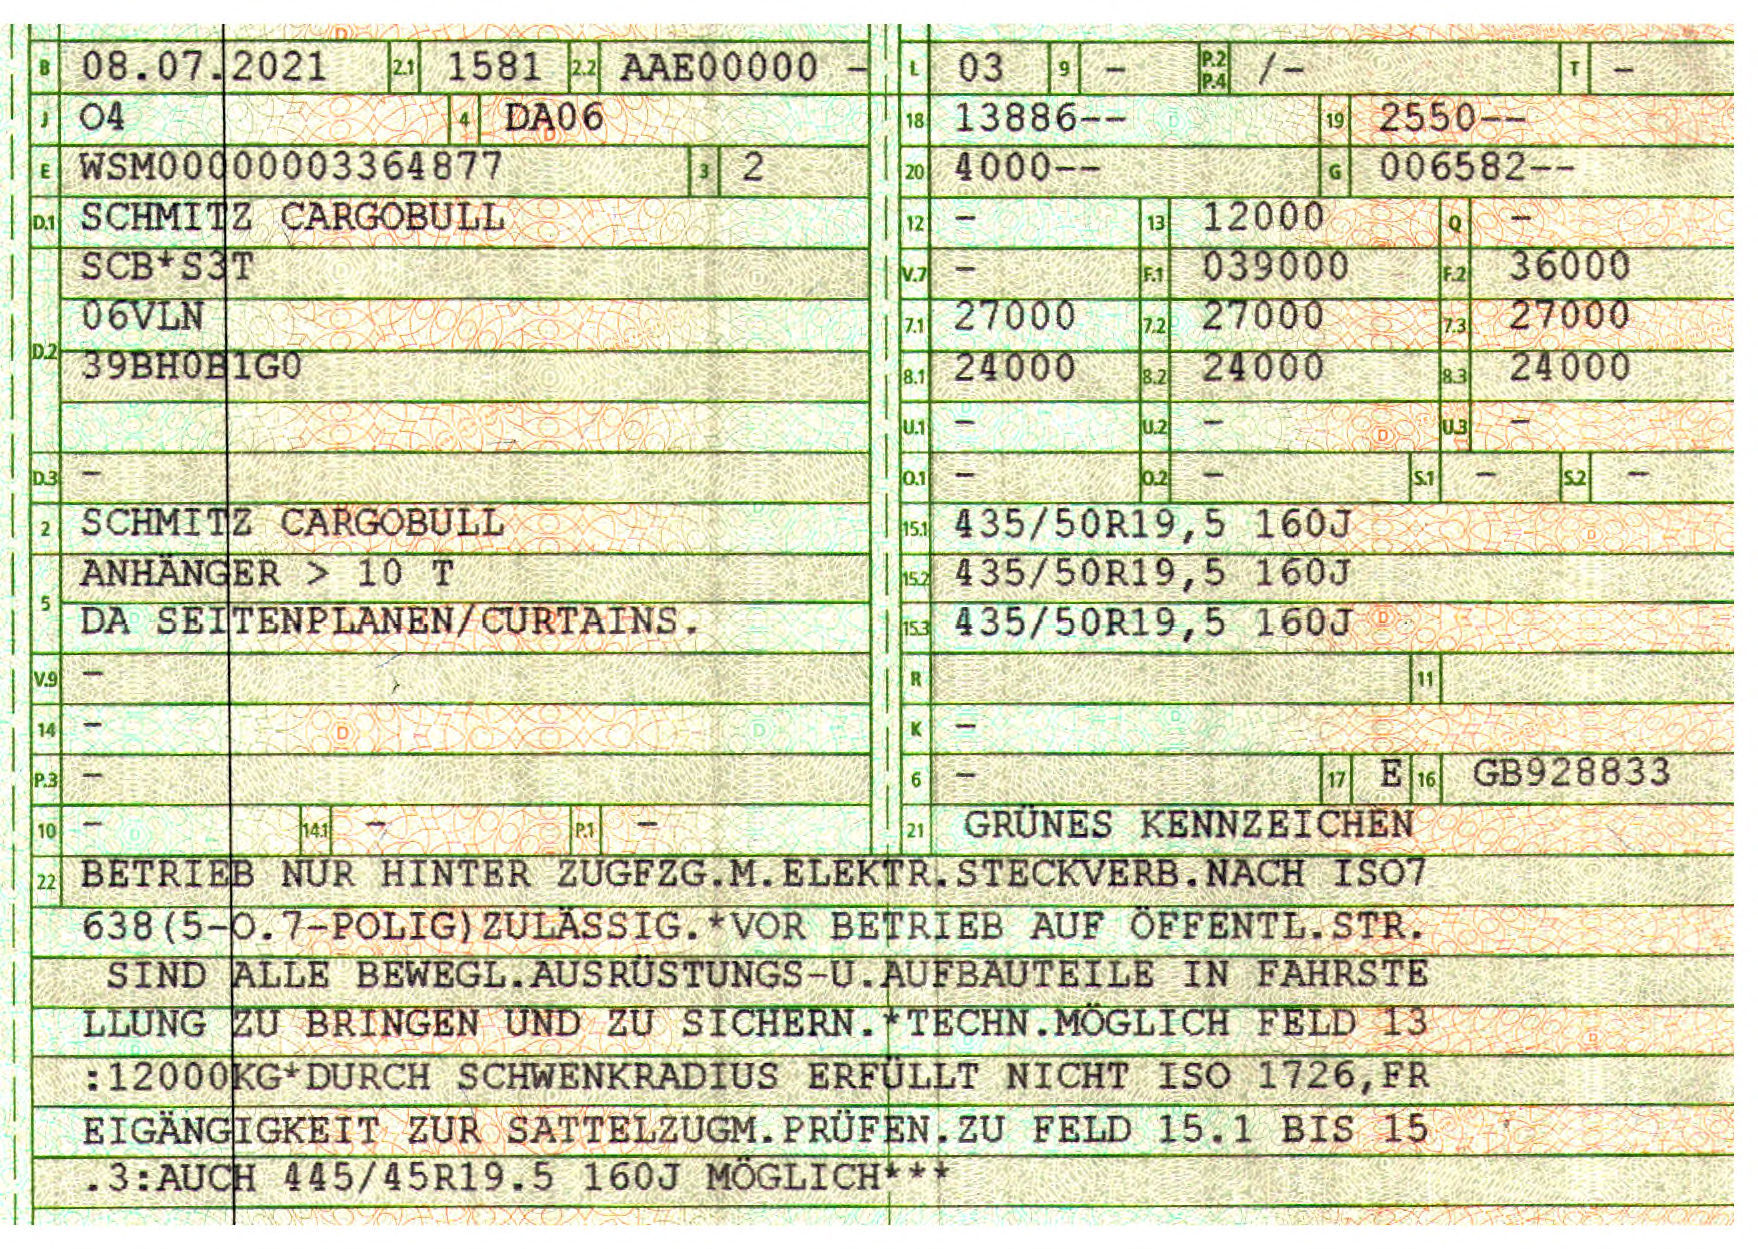 B 08.07.2021 2.1 1581 2.2 AAE00000 - L 03 9 - P.2 P.4 /- T -
J O4 4 DA06 18 13886-- 19 2550--
E WSM00000003364877 3 2 20 4000-- G 006582--
D.1 SCHMITZ CARGOBULL 12 - 13 12000 Q -
SCB*S3T V.7 - F.1 039000 F.2 36000
06VLN 7.1 27000 7.2 27000 7.3 27000
D.2 39BH0B1G0 8.1 24000 8.2 24000 8.3 24000
U.1 - U.2 - U.3 -
D.3 - O.1 - O.2 - S.1 - S.2 -
2 SCHMITZ CARGOBULL 15.1 435/50R19,5 160J
ANHÄNGER > 10 T 15.2 435/50R19,5 160J
5 DA SEITENPLANEN/CURTAINS. 15.3 435/50R19,5 160J
V.9 - R 11
14 - K -
P.3 - 6 - 17 E 16 GB928833
10 - 14.1 - P.1 - 21 GRÜNES KENNZEICHEN
22 BETRIEB NUR HINTER ZUGFZG.M.ELEKTR.STECKVERB.NACH ISO7
638(5-O.7-POLIG)ZULÄSSIG.*VOR BETRIEB AUF ÖFFENTL.STR.
SIND ALLE BEWEGL.AUSRÜSTUNGS-U.AUFBAUTEILE IN FAHRSTE
LLUNG ZU BRINGEN UND ZU SICHERN.*TECHN.MÖGLICH FELD 13
:12000KG*DURCH SCHWENKRADIUS ERFÜLLT NICHT ISO 1726,FR
EIGÄNGIGKEIT ZUR SATTELZUGM.PRÜFEN.ZU FELD 15.1 BIS 15
.3:AUCH 445/45R19.5 160J MÖGLICH***